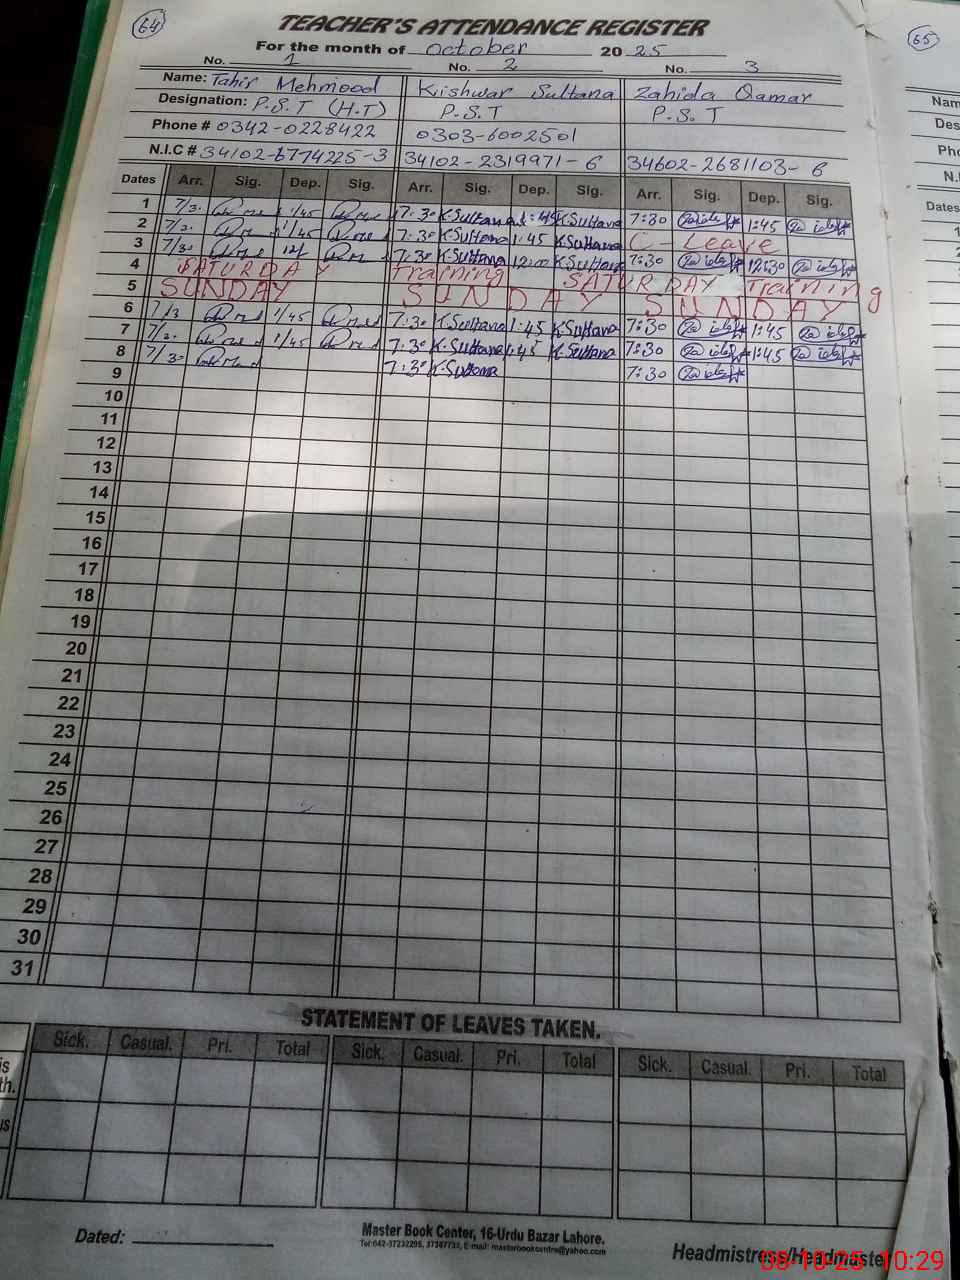 64
TEACHER'S ATTENDANCE REGISTER
65
For the month of October 2025
No. 1 No. 2 No. 3
Name: Tahir Mehmood Kishwar Sultana Zahida Qamar
Designation: P.S.T (H.T) P.S.T P.S.T
Phone # 0342-0228422 0303-6002501
N.I.C # 34102-6774225-3 34102-2319971-6 34602-2681103-6
Dates Arr. Sig. Dep. Sig. Arr. Sig. Dep. Sig. Arr. Sig. Dep. Sig.
1 7/3. 1/45 7:30 K.Sultana 1:45 K.Sultana 7:30 1:45
2 7/3. 1/45 7:30 K.Sultana 1:45 K.Sultana C - Leave
3 7/30 12/ 7:30 K.Sultana 12:00 K.Sultana 7:30 12:30
4 SATURDAY Training SATURDAY Training
5 SUNDAY SUNDAY SUNDAY
6 7/3 1/45 7:30 K.Sultana 1:45 K.Sultana 7:30 1:45
7 7/3. 1/45 7:30 K.Sultana 1:45 K.Sultana 7:30 1:45
8 7/30 7:30 K.Sultana 7:30
9
10
11
12
13
14
15
16
17
18
19
20
21
22
23
24
25
26
27
28
29
30
31
STATEMENT OF LEAVES TAKEN.
Sick. Casual. Pri. Total Sick. Casual. Pri. Total Sick. Casual. Pri. Total
Dated:
Master Book Center, 16-Urdu Bazar Lahore.
Tel:042-37232295, 37367733, E-mail: masterbookcentre@yahoo.com
Headmistress/Headmaster
08-10-25 10:29